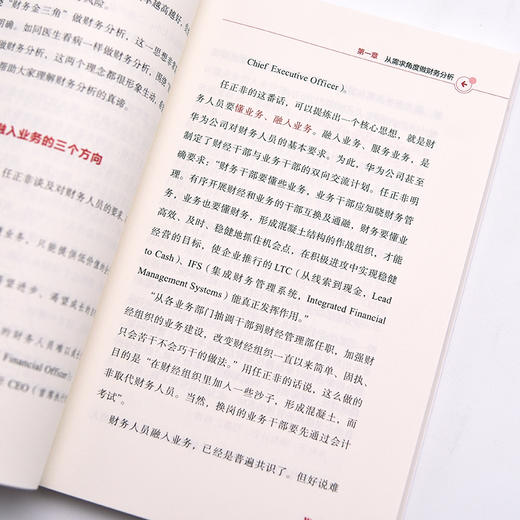 风险。
越高越好，
"财务金三角"做财务分析，这一思想非常
明确。如同医生看病一样做财务分析，围绕
，这两个理念都很形象生动，
帮助大家理解财务分析的真谛。
融入业务的三个方向
任正非谈及对财务人员的要求，
业务，只能提供低价值的
望进步、渴望成长的
的财务人员难以成
Financial Officer）。
CEO（首席
第一章 从需求角度做财务分析
Chief Executive Officer）。
任正非的这番话，可以提炼出一个核心思想，就是财
务人员要懂业务、融入业务。融入业务、服务业务，是
华为公司对财务人员的基本要求。为此，华为公司甚至
制定了财经干部与业务干部的双向交流计划。任正非明
确要求："财务干部要懂些业务，业务干部应知晓财务管
理。有序开展财经和业务的干部互换及通融，财务要懂业
务，业务也要懂财务，形成混凝土结构的作战组织，才能
高效、及时、稳健地抓住机会点，在积极进攻中实现稳健
经营的目标，使企业推行的 LTC（从线索到现金，Lead
to Cash）、IFS（集成财务管理系统，Integrated Financial
Management Systems）能真正发挥作用。"
"从各业务部门抽调干部到财经管理部任职，加强财
经组织的业务建设，改变财经组织一直以来简单、固执、
只会苦干不会巧干的做法。"用任正非的话说，这么做的
目的是"在财经组织里加入一些沙子，形成混凝土，而
非取代财务人员。当然，换岗的业务干部要先通过会计
考试"。
财务人员融入业务，已经是普遍共识了。但好说难